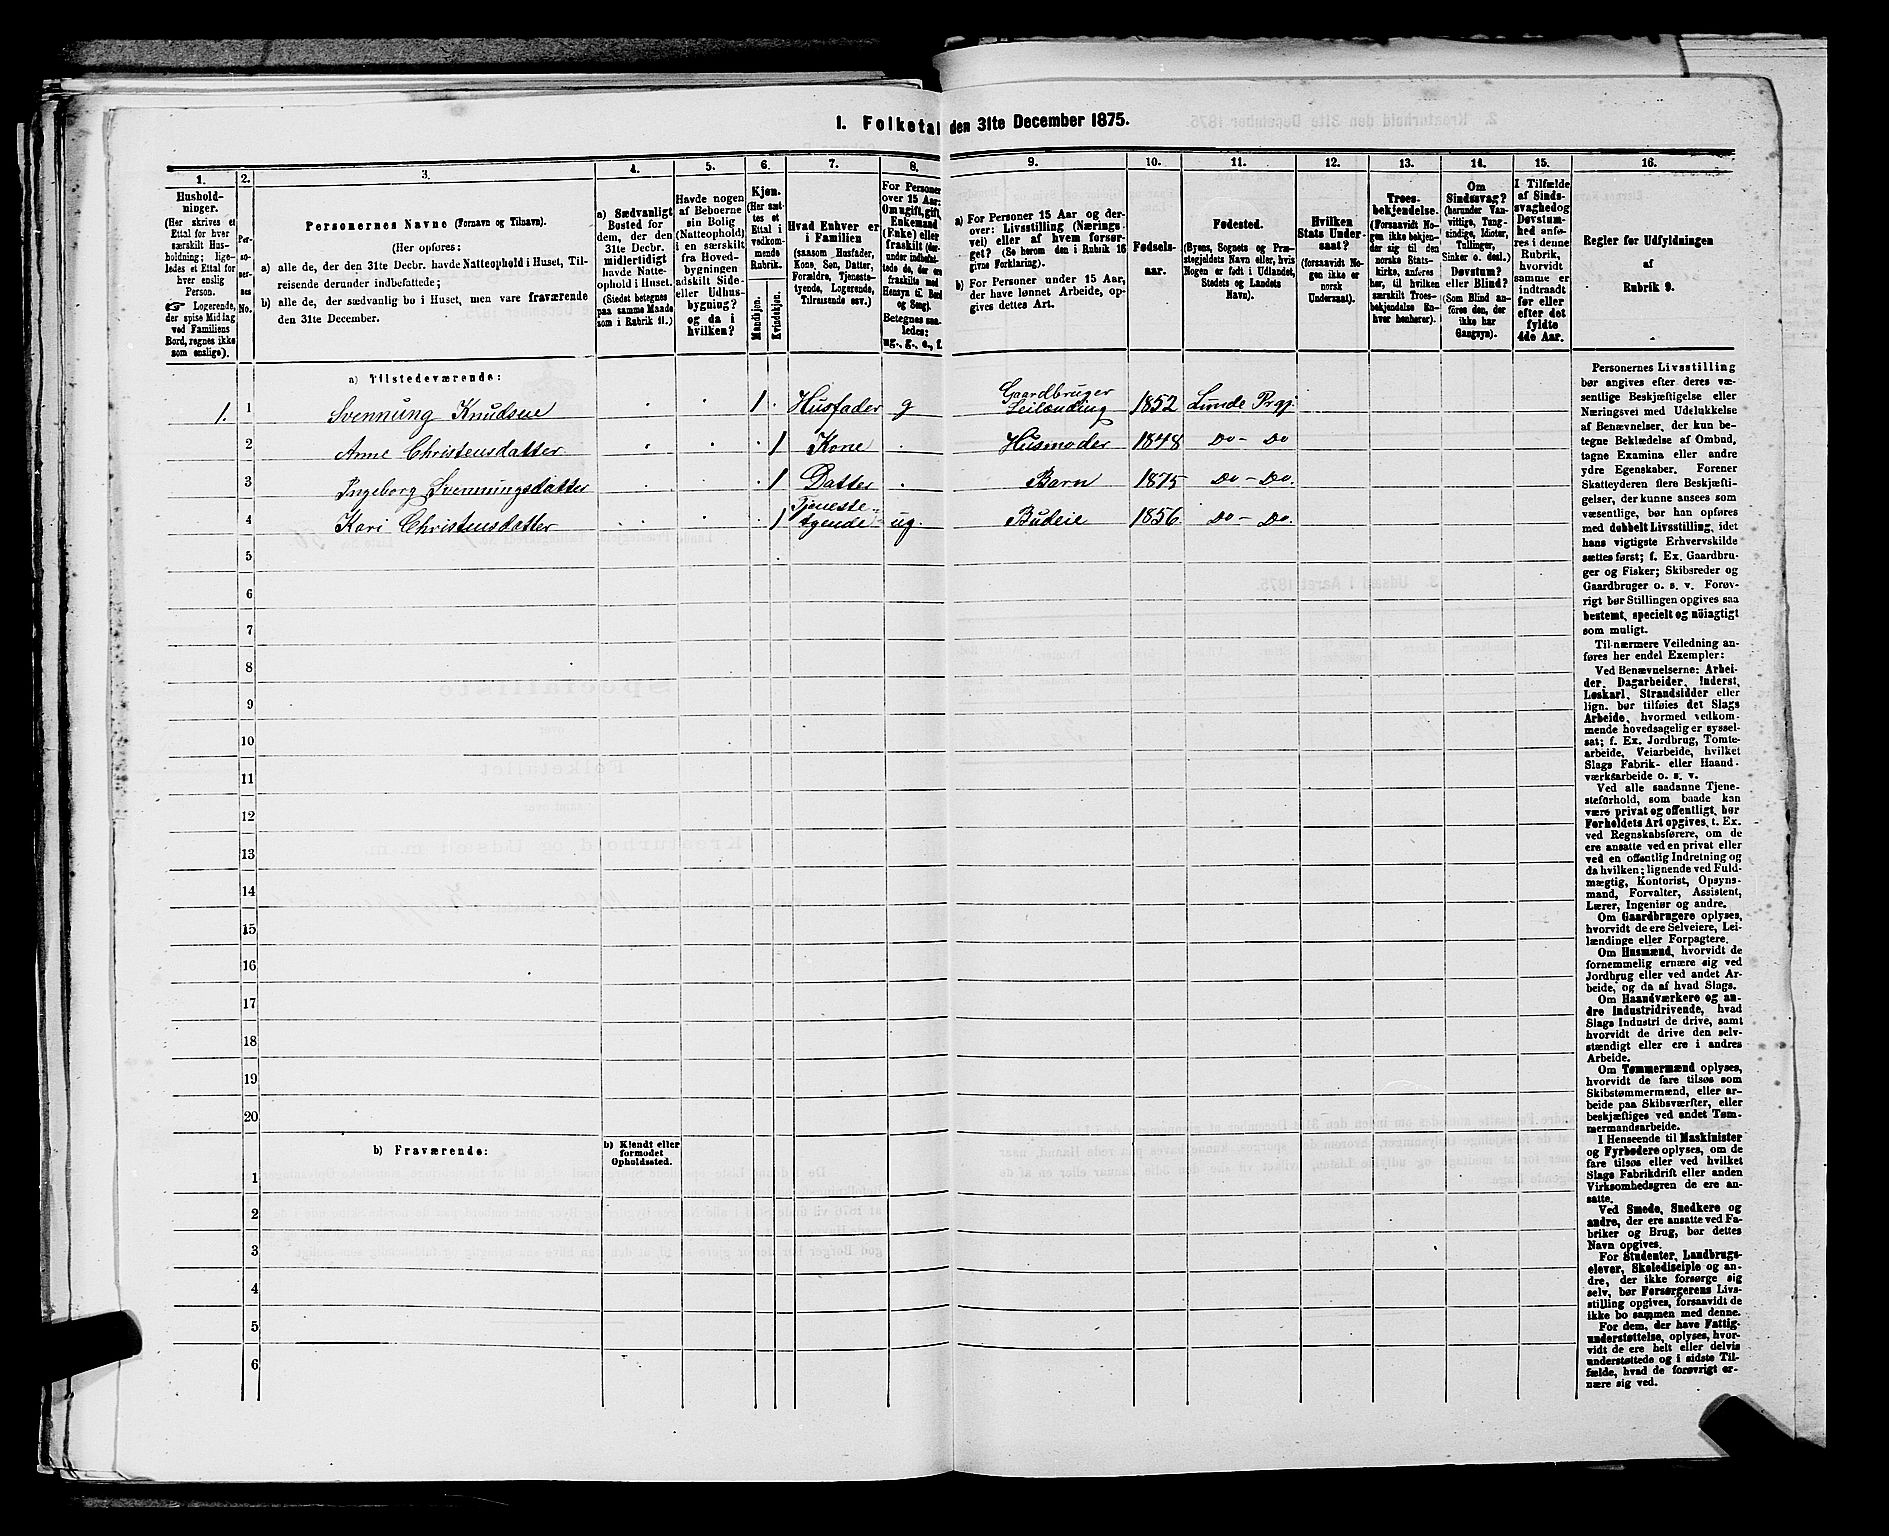 1. Folketal den 31te December 1875.
1. 2. 3. 4. 5. 6. 7. 8. 9. 10. 11. 12. 13. 14. 15. 16.
Hushold-
ninger.
(Her skrives et
Ettal for hver
særskilt Hus-
holdning; lige-
ledes et Ettal for
hver enslig
Person.
☞ Logerende,
der spise Middag
ved Familiens
Bord, regnes ikke
som enslige).
Per-
soner-
nes
No.
Personernes Navne (Fornavn og Tilnavn).
(Her opføres:
a) alle de, der den 31te Decbr. havde Natteophold i Huset, Til-
reisende derunder indbefattede;
b) alle de, der sædvanlig bo i Huset, men vare fraværende
den 31te December.
a) Sædvanligt
Bosted for
dem, der den
31te Decbr.
midlertidigt
havde Natte-
ophold i Huset.
(Stedet betegnes
paa samme Maade
som i Rubrik 11.)
Havde nogen
af Beboerne
sin Bolig
(Natteophold)
i en særskilt
fra Hoved-
bygningen
adskilt Side-
eller Udhus-
bygning?
og da i
hvilken?
Kjøn.
(Her sæt-
tes et
Ettal i
vedkom-
mende
Rubrik.
Mandkjøn.
Kvindekjøn.
Hvad Enhver er
i Familien
(saasom Husfader,
Kone, Søn, Datter,
Forældre, Tjeneste-
tyende, Logerende,
Tilreisende osv.)
For Personer
over 15 Aar:
Om ugift, gift,
Enkemand
(Enke) eller
fraskilt (der-
under indbefat-
tede de, der ere
fraskilte med
Hensyn til Bord
og Seng).
Betegnes saa-
ledes:
ug., g., e., f.
a) For Personer 15 Aar og der-
over: Livsstilling (Nærings-
vei) eller af hvem forsør-
get? (Se herom den i Rubrik 16
givne Forklaring).
b) For Personer under 15 Aar,
der have lønnet Arbeide, op-
gives dettes Art.
Fødsels-
aar.
Fødested.
(Byens, Sognets og Præ-
stegjeldets Navn eller, hvis
Nogen er født i Udlandet,
Stedets og Landets
Navn).
Hvilken
Stats Under-
saat?
(forsaavidt No-
gen ikke er
norsk
Undersaat).
Troes-
bekjendelse.
(Forsaavidt No-
gen ikke bekjen-
der sig til den
norske Stats-
kirke, anføres
her, til hvilken
særskilt Troes-
bekjendelse En-
hver henhører).
Om
Sindssvag?
(herunder Van-
vittige, Tung-
sindige, Idioter,
Tullinger,
Sinker o. desl.)
Døvstum?
eller Blind?
(Som Blind an-
føres den, der
ikke har
Gangsyn).
I Tilfælde
af Sinds-
svaghed og
Døvstum-
hed anfø-
res i denne
Rubrik,
hvorvidt
samme er
indtraadt
før eller
efter det
fyldte
4de Aar.
Regler for Udfyldningen
af
Rubrik 9.
a) Tilstedeværende:
1. 1 Svennung Knudsen 1 Husfader g Gaardbruger Leilænding 1852 Lunde Prgj.
2 Anne Christensdatter 1 Kone Husmoder 1848 Do - Do
3 Ingeborg Svenningsdatter 1 Datter Barn 1875 Do - Do.
4 Kari Christensdatter 1 Tjeneste-tyende ug. Budeie 1856 Do - Do.
5
6
7
8
9
10
11
12
13
14
15
16
17
18
19
20
b) Fraværende:
b) Kjendt eller
formodet
Opholdssted.
1
2
3
4
5
6
Personernes Livsstilling
bør angives efter deres væ-
sentlige Beskjæftigelse eller
Næringsvei med Udelukkelse
af Benævnelser, der kun be-
tegne Beklædelse af Ombud,
tagne Examina eller andre
ydre Egenskaber. Forener
Skatteyderen flere Beskjæfti-
gelser, der kunne ansees som
væsentlige, bør han opføres
med dobbelt Livsstilling, idet
hans vigtigste Erhvervskilde
sættes først; f. Ex. Gaardbru-
ger og Fisker; Skibsreder og
Gaardbruger o. s. v. Forøv-
rigt bør Stillingen opgives saa
bestemt, specielt og nöiagtigt
som muligt.
Til nærmere Veiledning an-
føres her endel Exempler:
Ved Benævnelserne: Arbei-
der, Dagarbeider, Inderst,
Løskarl, Strandsidder eller
lign. bør tilføies det Slags
Arbeide, hvormed vedkom-
mende hovedsagelig er syssel-
sat; f. Ex. Jordbrug, Tomte-
arbeide, Veiarbeide, hvilket
Slags Fabrik- eller Haand-
værksarbeide o. s. v.
Ved alle saadanne Tjene-
steforhold, som baade kan
være privat og offentligt, bør
Forholdets Art opgives, t. Ex.
ved Regnskabsførere, om de
ere ansatte ved en privat eller
ved en offentlig Indretning og
da hvilken; lignende ved Fuld-
mægtig, Kontorist, Opsyns-
mand, Forvalter, Assistent,
Lærer, Ingeniør og andre.
Om Gaardbrugere oplyses,
hvorvidt de ere Selveiere, Lei-
lændinge eller Forpagtere.
Om Husmænd, hvorvidt de
fornemmelig ernære sig ved
Jordbrug eller ved andet Ar-
beide, og da af hvad Slags.
Om Haandværkere og an-
dre Industridrivende, hvad
Slags Industri de drive, samt
hvorvidt de drive den selv-
stændigt eller ere i andres
Arbeide.
Om Tømmermænd oplyses,
hvorvidt de fare tilsøs som
Skibstømmermænd, eller ar-
beide paa Skibsværfter, eller
beskjæftiges ved andet Tøm-
mermandsarbeide.
I Henseende til Maskinister
og Fyrbødere oplyses, om de
fare tilsøs eller ved hvilket
Slags Fabrikdrift eller anden
Virksomhedsgren de ere an-
satte.
Ved Smede, Snedkere og
andre, der ere ansatte ved Fa-
briker og Brug, bør dettes
Navn opgives.
For Studenter, Landbrugs-
elever, Skoledisciple og an-
dre, der ikke forsørge sig
selv, bør Forsørgerens Livs-
stilling opgives, forsaavidt de
ikke bo sammen med denne.
For dem, der have Fattig-
understøttelse, oplyses, hvor-
vidt de ere helt eller delvis
understøttede og i sidste Til-
fælde, hvad de forøvrigt er-
nære sig ved.